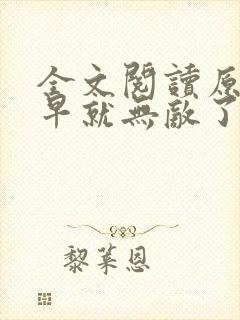 全文閱讀原
早就無敵了
黎萊恩